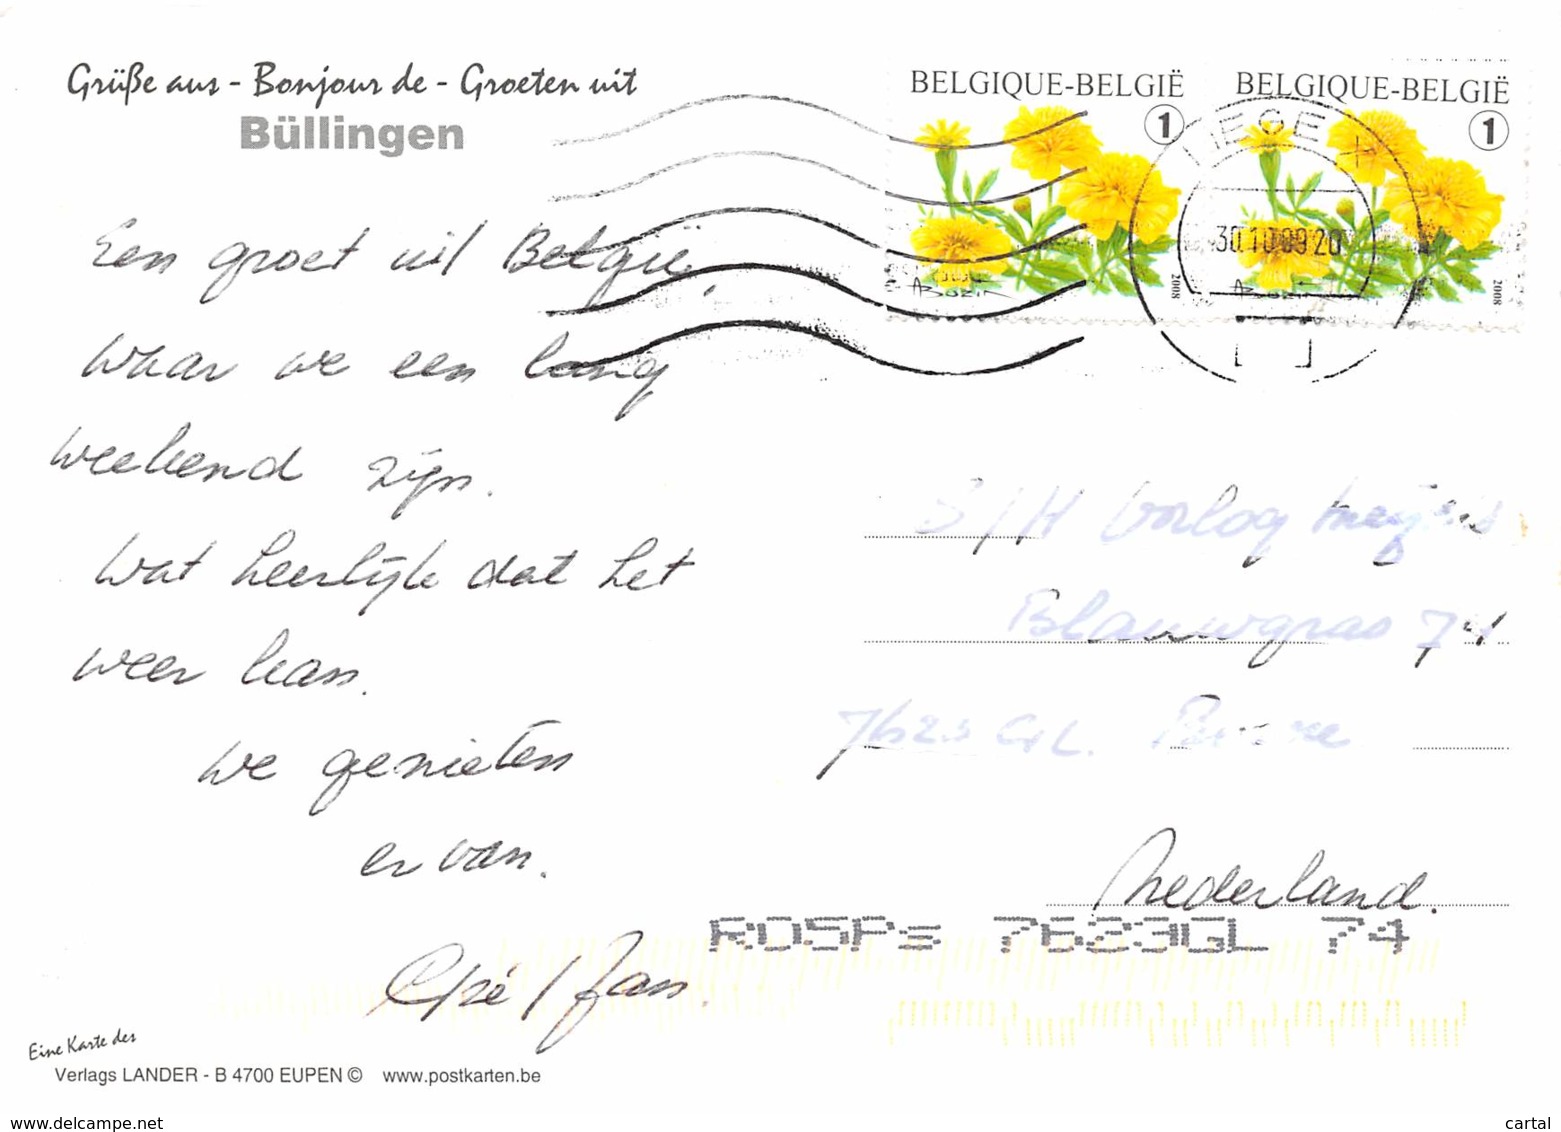 Grüße aus - Bonjour de - Groeten uit
Büllingen
BELGIQUE-BELGIË
1
BELGIQUE-BELGIË
1
LIEGE X
30.10.09 20
ABuzin
2008
ABuzin
2008
Een groet uit België,
waar we een lang
weekend zijn.
Wat heerlijk dat het
weer kan.
We genieten
er van.
/ Jan.
Blauwgras 74
7623 GL
Nederland.
ROSP= 7623GL 74
Eine Karte des
Verlags LANDER - B 4700 EUPEN © www.postkarten.be
www.delcampe.net
cartal